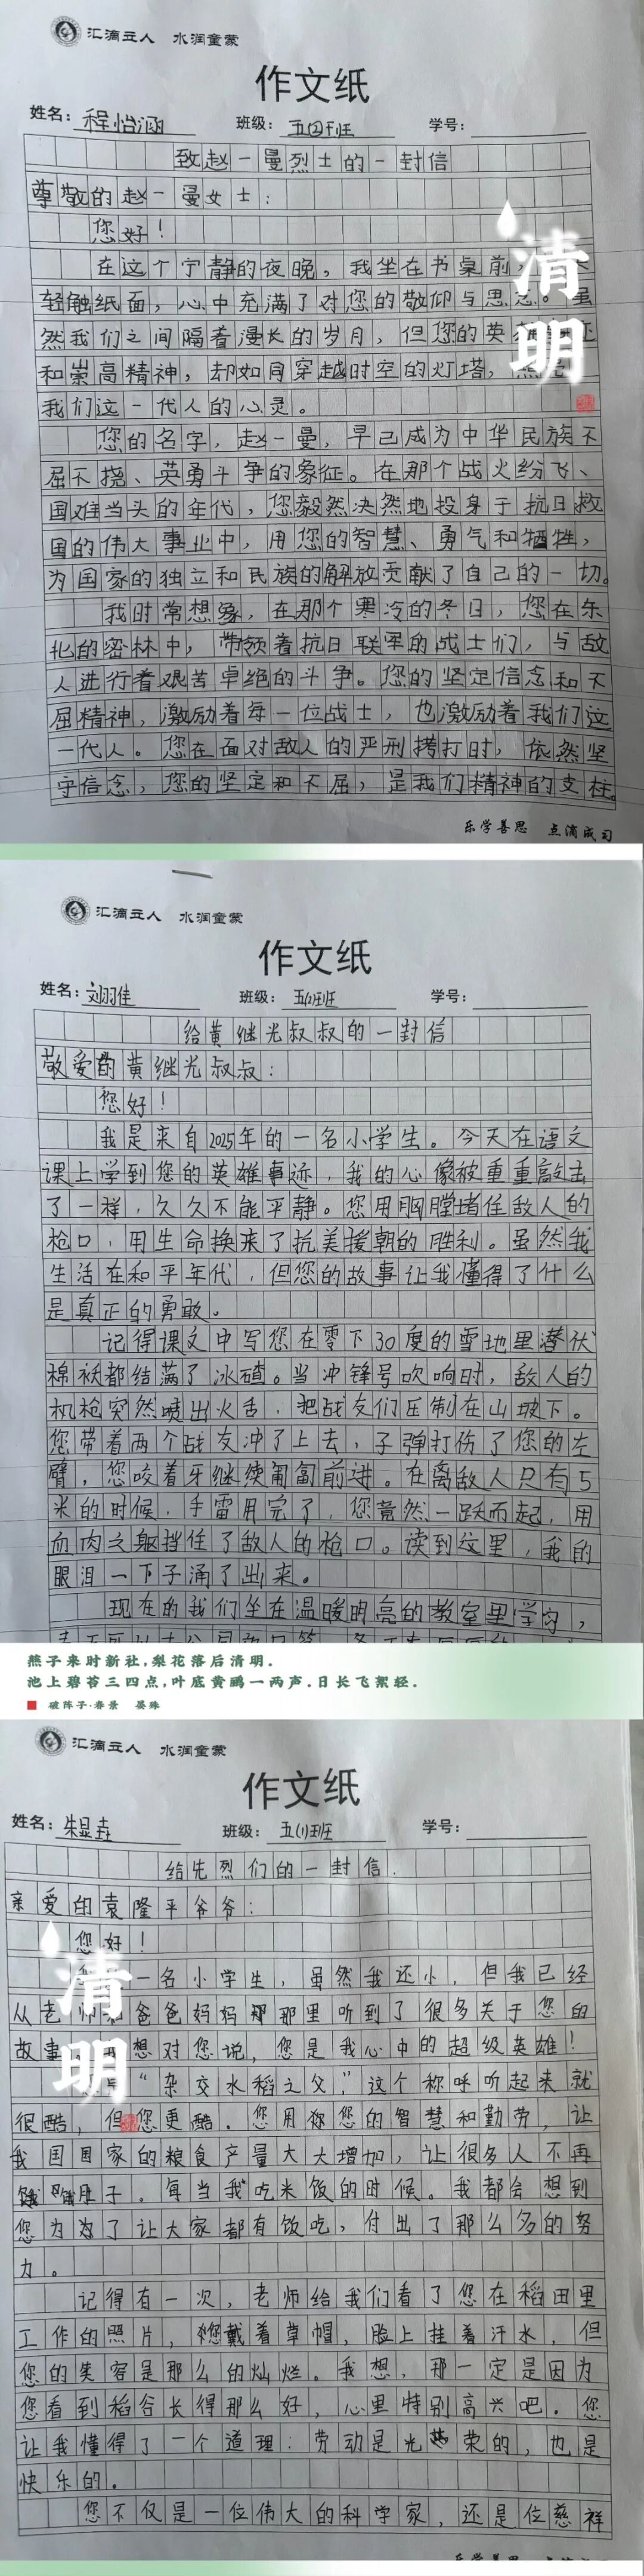 汇滴立人 水润童蒙
作文纸
姓名:程怡涵 班级:五(2)班 学号:
致赵一曼烈士的一封信
尊敬的赵一曼女士:
您好!
在这个宁静的夜晚,我坐在书桌前,
轻触纸面,心中充满了对您的敬仰与思念。虽
然我们之间隔着漫长的岁月,但您的英
和崇高精神,却如同穿越时空的灯塔,
我们这一代人的心灵。
清明
您的名字,赵一曼,早已成为中华民族不
屈不挠、英勇斗争的象征。在那个战火纷飞、
国难当头的年代,您毅然决然地投身于抗日救
国的伟大事业中,用您的智慧、勇气和牺牲,
为国家的独立和民族的解放贡献了自己的一切。
我时常想象,在那个寒冷的冬日,您在东
北的密林中,带领着抗日联军的战士们,与敌
人进行着艰苦卓绝的斗争。您的坚定信念和不
屈精神,激励着每一位战士,也激励着我们这
一代人。您在面对敌人的严刑拷打时,依然坚
守信念,您的坚定和不屈,是我们精神的支柱。
乐学善思 点滴成司
汇滴立人 水润童蒙
作文纸
姓名:刘羽佳 班级:五(2)班 学号:
给黄继光叔叔的一封信
敬爱的黄继光叔叔:
您好!
我是来自2025年的一名小学生。今天在语文
课上学到您的英雄事迹,我的心像被重重敲击
了一样,久久不能平静。您用胸膛堵住敌人的
枪口,用生命换来了抗美援朝的胜利。虽然我
生活在和平年代,但您的故事让我懂得了什么
是真正的勇敢。
记得课文中写您在零下30度的雪地里潜伏
棉袄都结满了冰碴。当冲锋号吹响时,敌人的
机枪突然喷出火舌,把战友们压制在山坡下。
您带着两个战友冲了上去,子弹打伤了您的左
臂,您咬着牙继续匍匐前进。在离敌人只有5
米的时候,手雷用完了,您竟然一跃而起,用
血肉之躯挡住了敌人的枪口。读到这里,我的
眼泪一下子涌了出来。
现在的我们坐在温暖明亮的教室里学习,
燕子来时新社,梨花落后清明.
池上碧苔三四点,叶底黄鹂一两声.日长飞絮轻.
破阵子·春景 晏殊
汇滴立人 水润童蒙
作文纸
姓名:朱显垚 班级:五(1)班 学号:
给先烈们的一封信.
亲爱的袁隆平爷爷:
您好!
一名小学生,虽然我还小,但我已经
从老师和爸爸妈妈那里听到了很多关于您的
故事,我想对您说,您是我心中的超级英雄!
清明
"杂交水稻之父"这个称呼听起来就
很酷,但您更酷.您用您的智慧和勤劳,让
我国国家的粮食产量大大增加,让很多人不再
饿肚子.每当我吃米饭的时候。我都会想到
您为了让大家都有饭吃,付出了那么多的努
力。
记得有一次,老师给我们看了您在稻田里
工作的照片,您戴着草帽,脸上挂着汗水,但
您的笑容是那么的灿烂。我想,那一定是因为
您看到稻谷长得那么好,心里特别高兴吧.您
让我懂得了一个道理:劳动是光荣的,也是
快乐的.
您不仅是一位伟大的科学家,还是位慈祥